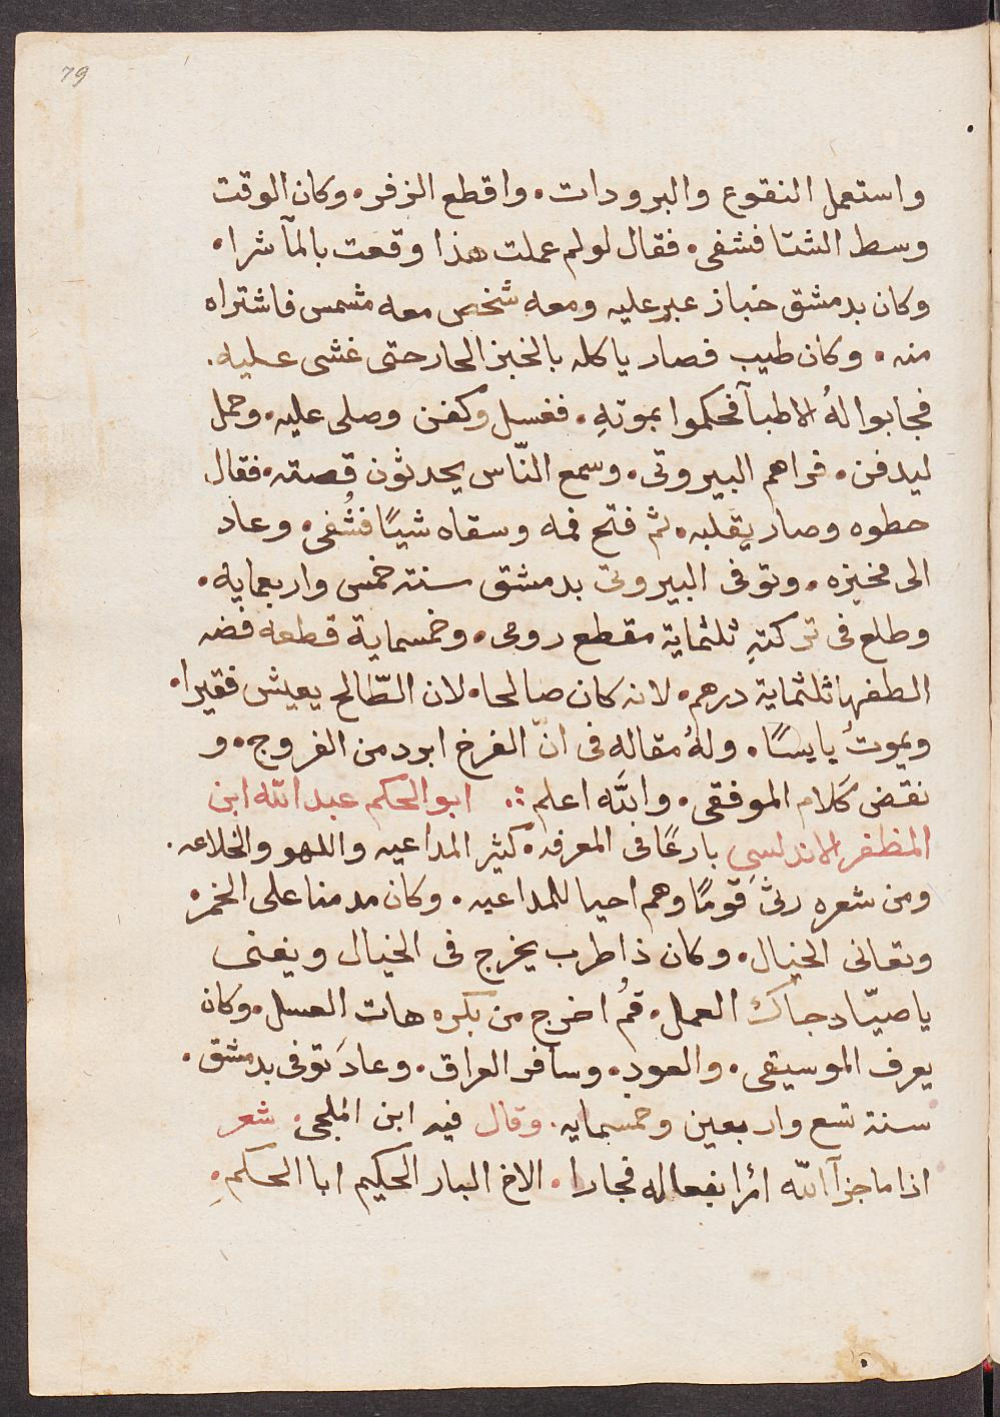 79
واستعمل النقوع والبرودات. واقطع الزفر. وكان الوقت
وسط الشتا فشفى. فقال لو لم عملت هذا وقعت بالمآشرا.
وكان بدمشق خباز عبر عليه ومعه شخص معه مشمس فاشتراه
منه. وكان طيب فصار ياكله بالخبز الحار حتى غشى عليه.
فجابوا لهُ الاطبآ فحكموا بموتهِ. فغسل وكفن وصلى عليه. وحمل
ليدفن. فراهم البيروتى. وسمع النّاس يحدثون قصته. فقال
حطوه وصار يقلبه. ثم فتح فمه وسقاه شيًا فشُفى. وعاد
الى مخبزه. وتوفى البيروتى بدمشق سنة خمس واربعماية.
وطلع فى تركتهِ ثلثماية مقطع رومى. وخمسماية قطعه فضه
الطفها ثلثماية درهم. لانه كان صالحا. لان الطّالح يعيش فقيرا.
ويموتُ يايسًا. ولهُ مقاله فى انّ الفرخ ابرد من الفروج. و
نقض كلام الموفقى. والله اعلم ∴ ابو الحكم عبد الله ابن
المظفر الاندلسي بارعًا فى المعرفه. كثير المداعبه واللهو والخلاعه.
ومن شعره رثى قومًا وهم احيا للمداعبه. وكان مدمنا على الخمر.
وتعانى الخيال. وكان ذا طرب يخرج فى الخيال ويغنى
يا صيّاد جاك العمل. قُم اخرج من بكره هات العسل. وكان
يعرف الموسيقى. والعود. وسافر العراق. وعادَ توفى بدمشق.
سنة تسع واربعين وخمسمايه. وقال فيه ابن الملجى. شعر
اذا ما جزآ الله امرًا بفعاله فجازا. الاخ البار الحكيم ابا الحكمِ.